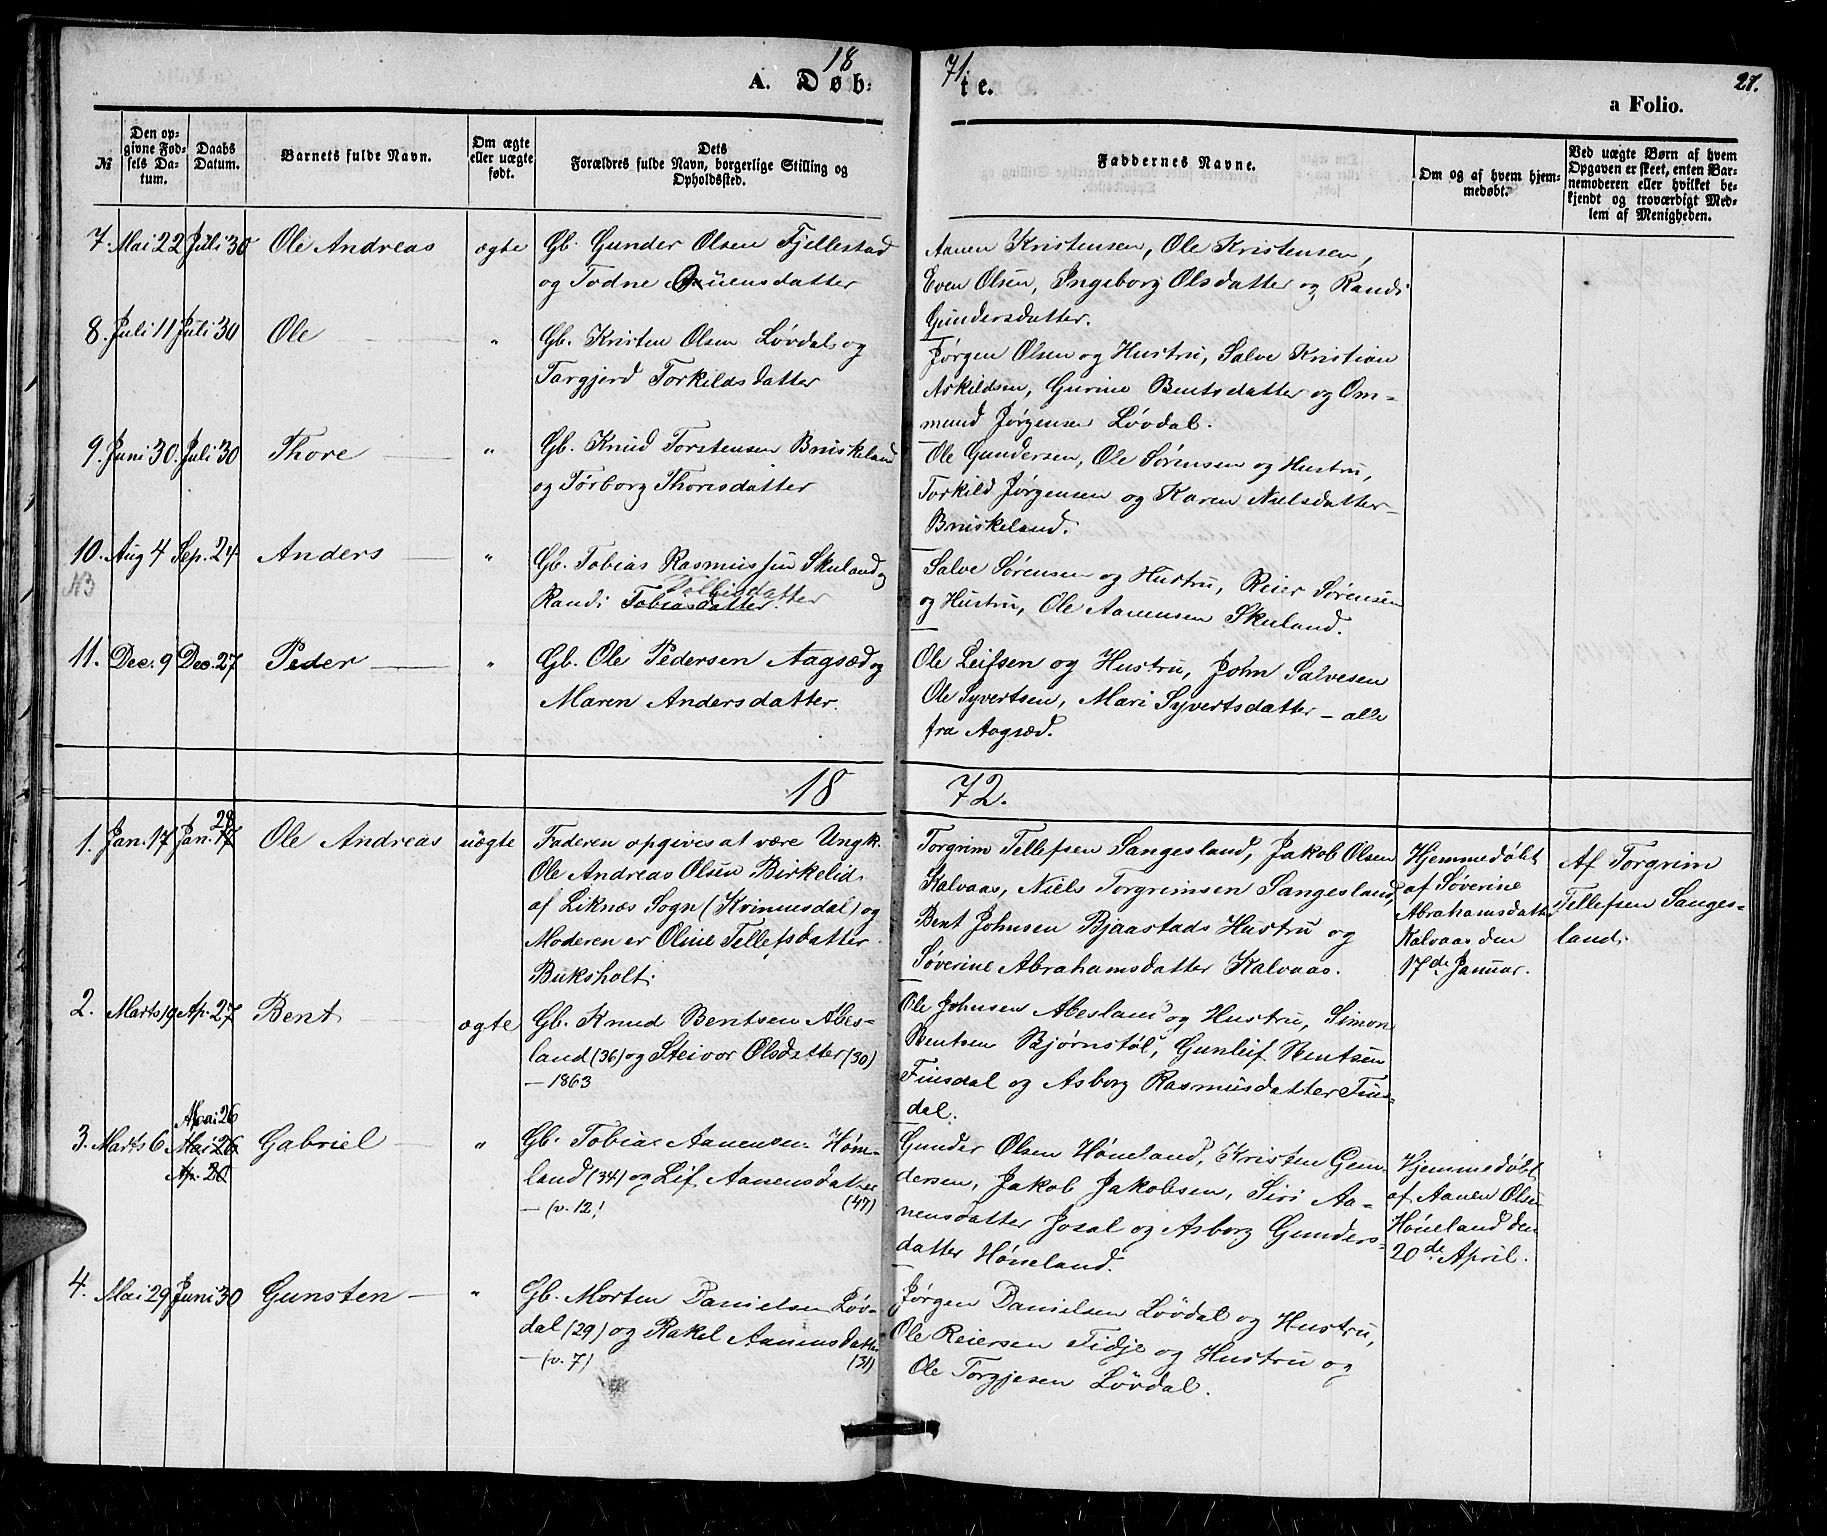 18 71
A. Døb: te. 27.
a Folio.
№
Den op-
givne Fød-
sels Da-
tum.
Daabs
Datum.
Barnets fulde Navn.
Om ægte
eller uægte
født.
Dets
Forældres fulde Navn, borgerlige Stilling og
Opholdssted.
Faddernes Navne.
Om og af hvem hjem-
medøbt.
Ved uægte Børn af hvem
Opgaven er skeet, enten Bar-
nemoderen eller hvilket be-
kjendt og troværdigt Med-
lem af Menigheden.
7. Mai 22 Juli 30 Ole Andreas ægte
Gb. Gunder Olsen Fjellestad
og Todne Ouensdatter
Aanen Kristensen, Ole Kristensen,
Even Olsen, Ingeborg Olsdatter og Randi
Gundersdatter.
8. Juli 11 Juli 30 Ole "
Gb. Kristen Olsen Løvdal og
Targjerd Torkildsdatter
Jørgen Olsen og Hustru, Salve Kristian
Askildsen, Gurine Bentsdatter og Om-
mund Jørgensen Løvdal.
9. Juni 30. Juli 30 Thore "
Gb. Knud Torstensen Bruskeland
og Torborg Thoresdatter
Ole Gundersen, Ole Sørensen og Hustru,
Torkild Jørgensen og Karen Nielsdatter
Bruskeland.
10. Aug 4 Sep. 24 Anders "
N3
Gb. Tobias Rasmussen Skuland og
Randi Tobiasdatter.
Tollisdatter
Salve Sørensen og Hustru, Reier Sørensen
og Hustru, Ole Aanensen Skuland.
11. Dec. 9 Dec. 27 Peder "
Gb. Ole Pedersen Aagsæd og
Maren Andersdatter.
Ole Leifsen og Hustru, John Salvesen
Ole Syvertsen, Mari Syvertsdatter - alle
fra Aagsæd.
18 72.
28
1. Jan. 17 Jan. 17 Ole Andreas uægte
Faderen opgives at være Ungk.
Ole Andreas Olsen Birkelid
af Liknæs Sogn (Kvinnesdal) og
Moderen er Oline Tellefsdatter
Buksholt.
Torgrim Tellefsen Sangesland, Jakob Olsen
Kalvaas, Niels Torgrimsen Sangesland,
Bent Johnsen Bjaastads Hustru og
Søverine Abrahamsdatter Kalvaas.
Hjemmedøbt
af Søverine
Abrahamsdatter
Kalvaas den
17de Januar.
Af Torgrim
Tellefsen Sanges-
land.
2. Marts 19 Ap. 27 Bent ægte
Gb. Knud Bentsen Abes-
land (36) og Steivor Olsdatter (30)
- 1863
Ole Johnsen Abesland og Hustru, Simon
Bentsen Bjørnstøl, Gunleif Bentsen
Finsdal og Asborg Rasmusdatter Fins-
dal.
Mai 26
3. Marts 6 Mai 26 Gabriel "
Ap. 20
Gb. Tobias Aanensen Høne-
land (34) og Lif Aanensdatter
- (v. 12) (47)
Gunder Olsen Høneland, Kristen Gun-
dersen, Jakob Jakobsen, Siri Aa-
nensdatter Josal og Asborg Gunders-
datter Høneland.
Hjemmedøbt
af Aanen Olsen
Høneland den
20de April.
4. Mai 29 Juni 30 Gunsten "
Gb. Morten Danielsen Løv-
dal (29) og Rakel Aanensdatter
- (v. 7) (31)
Jørgen Danielsen Løvdal og Hustru,
Ole Reiersen Tidje og Hustru og
Ole Torgjesen Løvdal.